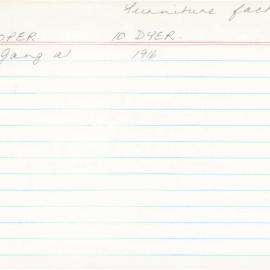 Furniture fact
OPER. 10 DYER.
Gang a 1916